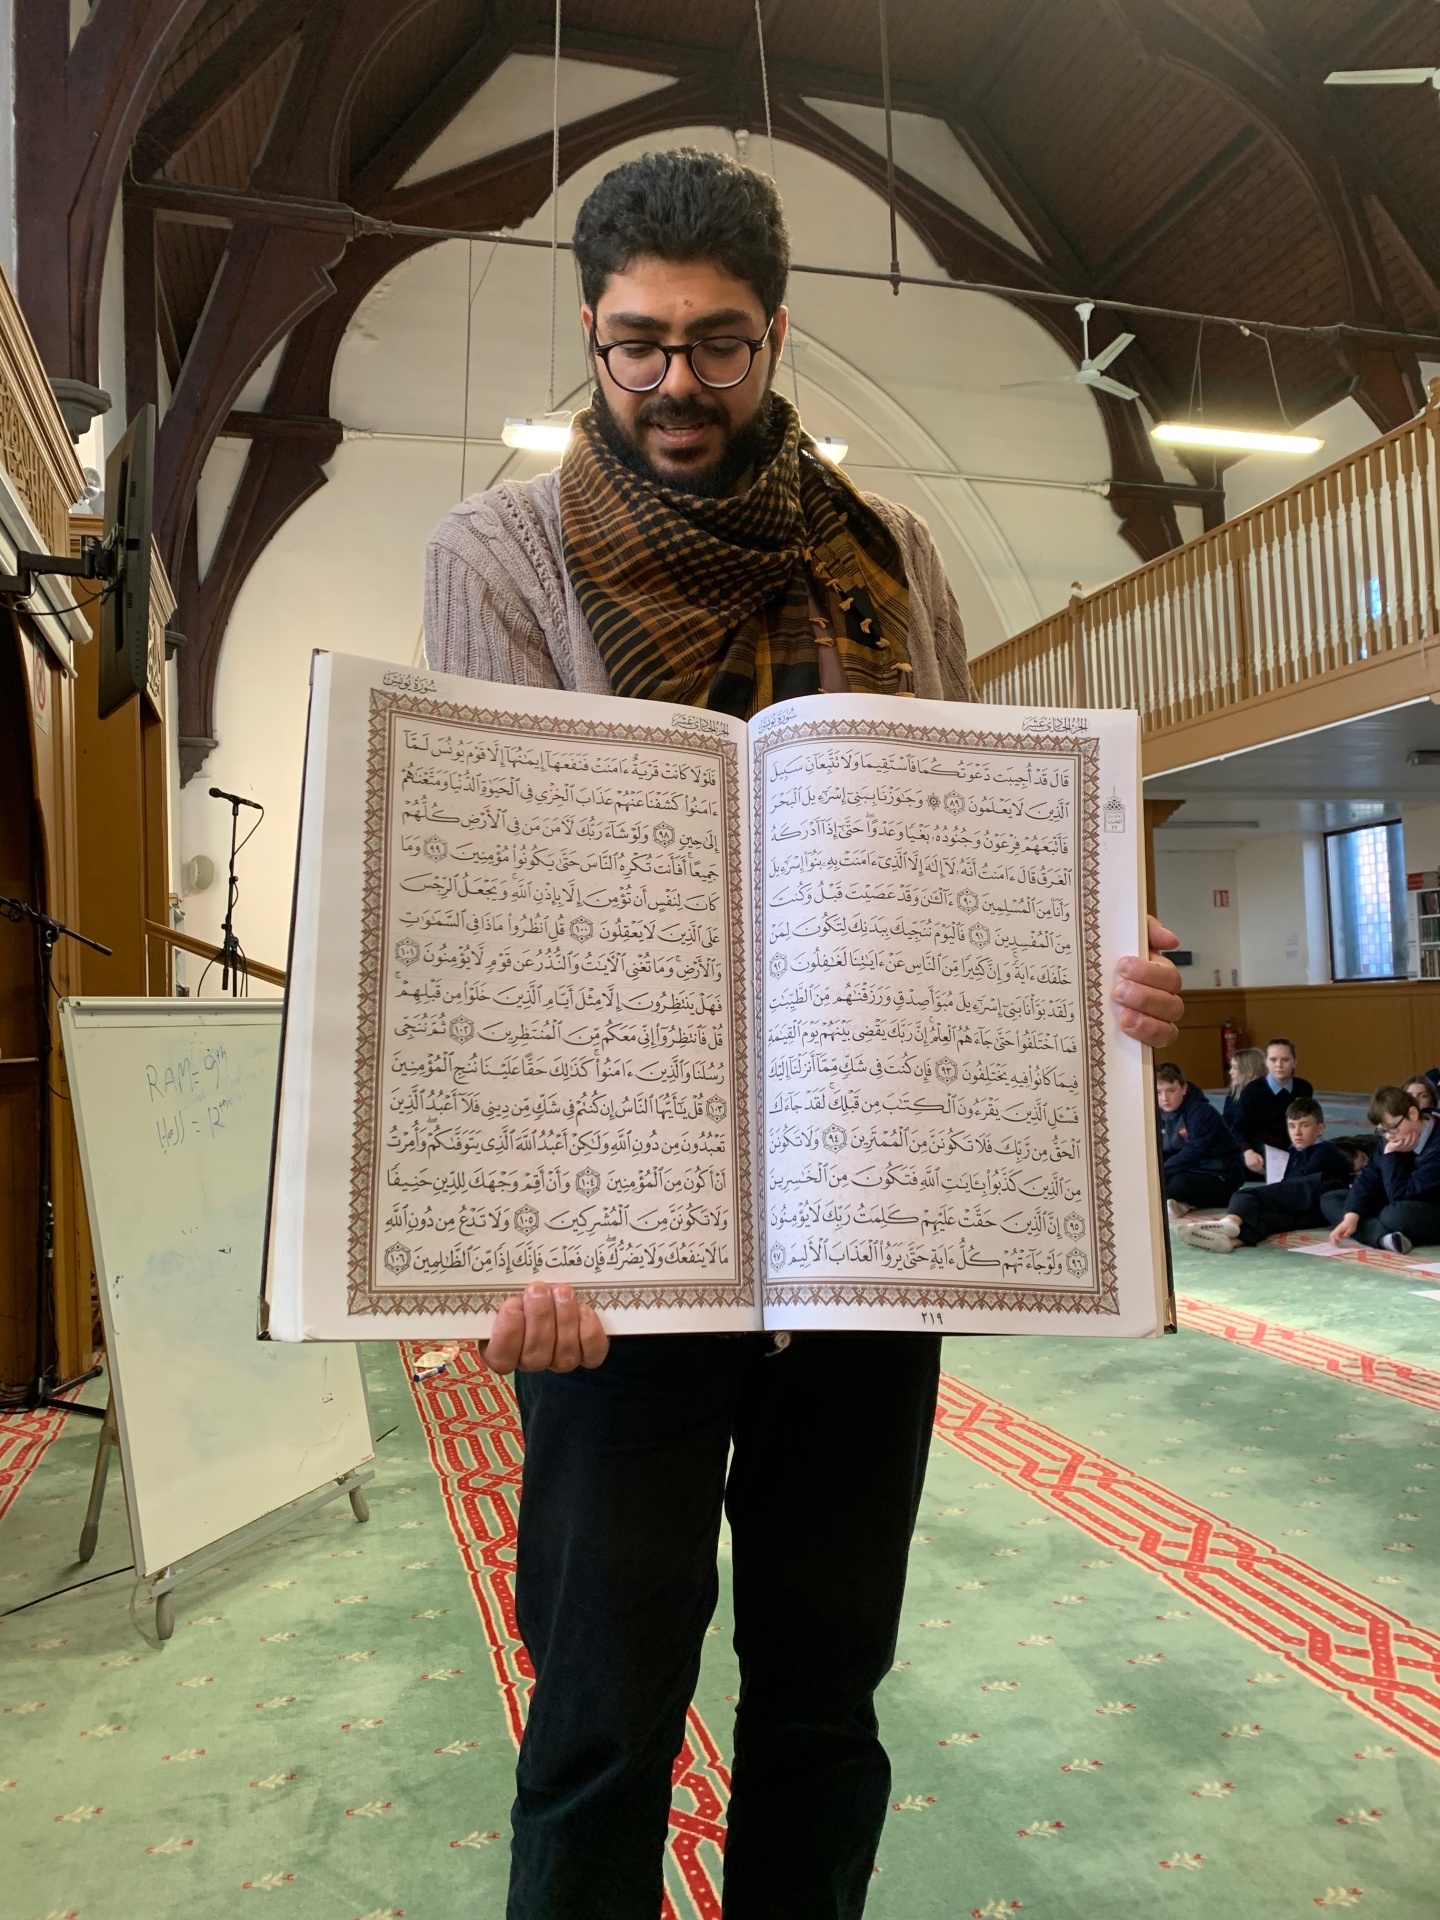 الجزء الحادي عشر
سورة يونس
قَالَ قَدْ أُجِيبَت دَّعْوَتُكُمَا فَٱسْتَقِيمَا وَلَا تَتَّبِعَآنِّ سَبِيلَ
ٱلَّذِينَ لَا يَعْلَمُونَ ٨٩ ۞ وَجَٰوَزْنَا بِبَنِىٓ إِسْرَٰٓءِيلَ ٱلْبَحْرَ
فَأَتْبَعَهُمْ فِرْعَوْنُ وَجُنُودُهُۥ بَغْيًا وَعَدْوًا ۖ حَتَّىٰٓ إِذَآ أَدْرَكَهُ
ٱلْغَرَقُ قَالَ ءَامَنتُ أَنَّهُۥ لَآ إِلَٰهَ إِلَّا ٱلَّذِىٓ ءَامَنَتْ بِهِۦ بَنُوٓا۟ إِسْرَٰٓءِيلَ
وَأَنَا۠ مِنَ ٱلْمُسْلِمِينَ ٩٠ ءَآلْـَٰٔنَ وَقَدْ عَصَيْتَ قَبْلُ وَكُنتَ
مِنَ ٱلْمُفْسِدِينَ ٩١ فَٱلْيَوْمَ نُنَجِّيكَ بِبَدَنِكَ لِتَكُونَ لِمَنْ
خَلْفَكَ ءَايَةً ۚ وَإِنَّ كَثِيرًا مِّنَ ٱلنَّاسِ عَنْ ءَايَٰتِنَا لَغَٰفِلُونَ ٩٢
وَلَقَدْ بَوَّأْنَا بَنِىٓ إِسْرَٰٓءِيلَ مُبَوَّأَ صِدْقٍ وَرَزَقْنَٰهُم مِّنَ ٱلطَّيِّبَٰتِ
فَمَا ٱخْتَلَفُوا۟ حَتَّىٰ جَآءَهُمُ ٱلْعِلْمُ ۚ إِنَّ رَبَّكَ يَقْضِى بَيْنَهُمْ يَوْمَ ٱلْقِيَٰمَةِ
فِيمَا كَانُوا۟ فِيهِ يَخْتَلِفُونَ ٩٣ فَإِن كُنتَ فِى شَكٍّ مِّمَّآ أَنزَلْنَآ إِلَيْكَ
فَسْـَٔلِ ٱلَّذِينَ يَقْرَءُونَ ٱلْكِتَٰبَ مِن قَبْلِكَ ۚ لَقَدْ جَآءَكَ
ٱلْحَقُّ مِن رَّبِّكَ فَلَا تَكُونَنَّ مِنَ ٱلْمُمْتَرِينَ ٩٤ وَلَا تَكُونَنَّ
مِنَ ٱلَّذِينَ كَذَّبُوا۟ بِـَٔايَٰتِ ٱللَّهِ فَتَكُونَ مِنَ ٱلْخَٰسِرِينَ
٩٥ إِنَّ ٱلَّذِينَ حَقَّتْ عَلَيْهِمْ كَلِمَتُ رَبِّكَ لَا يُؤْمِنُونَ
٩٦ وَلَوْ جَآءَتْهُمْ كُلُّ ءَايَةٍ حَتَّىٰ يَرَوُا۟ ٱلْعَذَابَ ٱلْأَلِيمَ ٩٧
٢١٩
الجزء الحادي عشر
سورة يونس
فَلَوْلَا كَانَتْ قَرْيَةٌ ءَامَنَتْ فَنَفَعَهَآ إِيمَٰنُهَآ إِلَّا قَوْمَ يُونُسَ لَمَّآ
ءَامَنُوا۟ كَشَفْنَا عَنْهُمْ عَذَابَ ٱلْخِزْىِ فِى ٱلْحَيَوٰةِ ٱلدُّنْيَا وَمَتَّعْنَٰهُمْ
إِلَىٰ حِينٍ ٩٨ وَلَوْ شَآءَ رَبُّكَ لَـَٔامَنَ مَن فِى ٱلْأَرْضِ كُلُّهُمْ
جَمِيعًا ۚ أَفَأَنتَ تُكْرِهُ ٱلنَّاسَ حَتَّىٰ يَكُونُوا۟ مُؤْمِنِينَ ٩٩ وَمَا
كَانَ لِنَفْسٍ أَن تُؤْمِنَ إِلَّا بِإِذْنِ ٱللَّهِ ۚ وَيَجْعَلُ ٱلرِّجْسَ
عَلَى ٱلَّذِينَ لَا يَعْقِلُونَ ١٠٠ قُلِ ٱنظُرُوا۟ مَاذَا فِى ٱلسَّمَٰوَٰتِ
وَٱلْأَرْضِ ۚ وَمَا تُغْنِى ٱلْـَٔايَٰتُ وَٱلنُّذُرُ عَن قَوْمٍ لَّا يُؤْمِنُونَ ١٠١
فَهَلْ يَنتَظِرُونَ إِلَّا مِثْلَ أَيَّامِ ٱلَّذِينَ خَلَوْا۟ مِن قَبْلِهِمْ ۚ
قُلْ فَٱنتَظِرُوٓا۟ إِنِّى مَعَكُم مِّنَ ٱلْمُنتَظِرِينَ ١٠٢ ثُمَّ نُنَجِّى
رُسُلَنَا وَٱلَّذِينَ ءَامَنُوا۟ ۚ كَذَٰلِكَ حَقًّا عَلَيْنَا نُنجِ ٱلْمُؤْمِنِينَ
١٠٣ قُلْ يَٰٓأَيُّهَا ٱلنَّاسُ إِن كُنتُمْ فِى شَكٍّ مِّن دِينِى فَلَآ أَعْبُدُ ٱلَّذِينَ
تَعْبُدُونَ مِن دُونِ ٱللَّهِ وَلَٰكِنْ أَعْبُدُ ٱللَّهَ ٱلَّذِى يَتَوَفَّىٰكُمْ ۖ وَأُمِرْتُ
أَنْ أَكُونَ مِنَ ٱلْمُؤْمِنِينَ ١٠٤ وَأَنْ أَقِمْ وَجْهَكَ لِلدِّينِ حَنِيفًا
وَلَا تَكُونَنَّ مِنَ ٱلْمُشْرِكِينَ ١٠٥ وَلَا تَدْعُ مِن دُونِ ٱللَّهِ
مَا لَا يَنفَعُكَ وَلَا يَضُرُّكَ ۖ فَإِن فَعَلْتَ فَإِنَّكَ إِذًا مِّنَ ٱلظَّٰلِمِينَ ١٠٦
RAM = 9th
Hajj = 12th